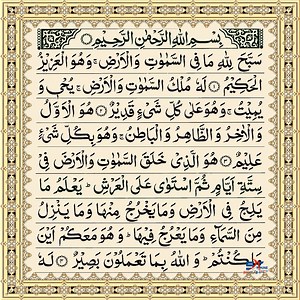 بِسْمِ اللهِ الرَّحْمٰنِ الرَّحِيْمِ
سَبَّحَ لِلّٰهِ مَا فِى السَّمٰوٰتِ وَالْاَرْضِ ۚ وَهُوَ الْعَزِيْزُ
الْحَكِيْمُ ۝۱ لَهٗ مُلْكُ السَّمٰوٰتِ وَالْاَرْضِ ۚ يُحْيٖ وَ
يُمِيْتُ ۚ وَهُوَ عَلٰى كُلِّ شَىْءٍ قَدِيْرٌ ۝۲ هُوَ الْاَوَّلُ
وَالْاٰخِرُ وَالظَّاهِرُ وَالْبَاطِنُ ۚ وَهُوَ بِكُلِّ شَىْءٍ
عَلِيْمٌ ۝۳ هُوَ الَّذِىْ خَلَقَ السَّمٰوٰتِ وَالْاَرْضَ فِىْ
سِتَّةِ اَيَّامٍ ثُمَّ اسْتَوٰى عَلَى الْعَرْشِ ؕ يَعْلَمُ مَا
يَلِجُ فِى الْاَرْضِ وَمَا يَخْرُجُ مِنْهَا وَمَا يَنْزِلُ
مِنَ السَّمَآءِ وَمَا يَعْرُجُ فِيْهَا ؕ وَهُوَ مَعَكُمْ اَيْنَ
مَا كُنْتُمْ ؕ وَاللهُ بِمَا تَعْمَلُوْنَ بَصِيْرٌ ۝۴ لَهٗ